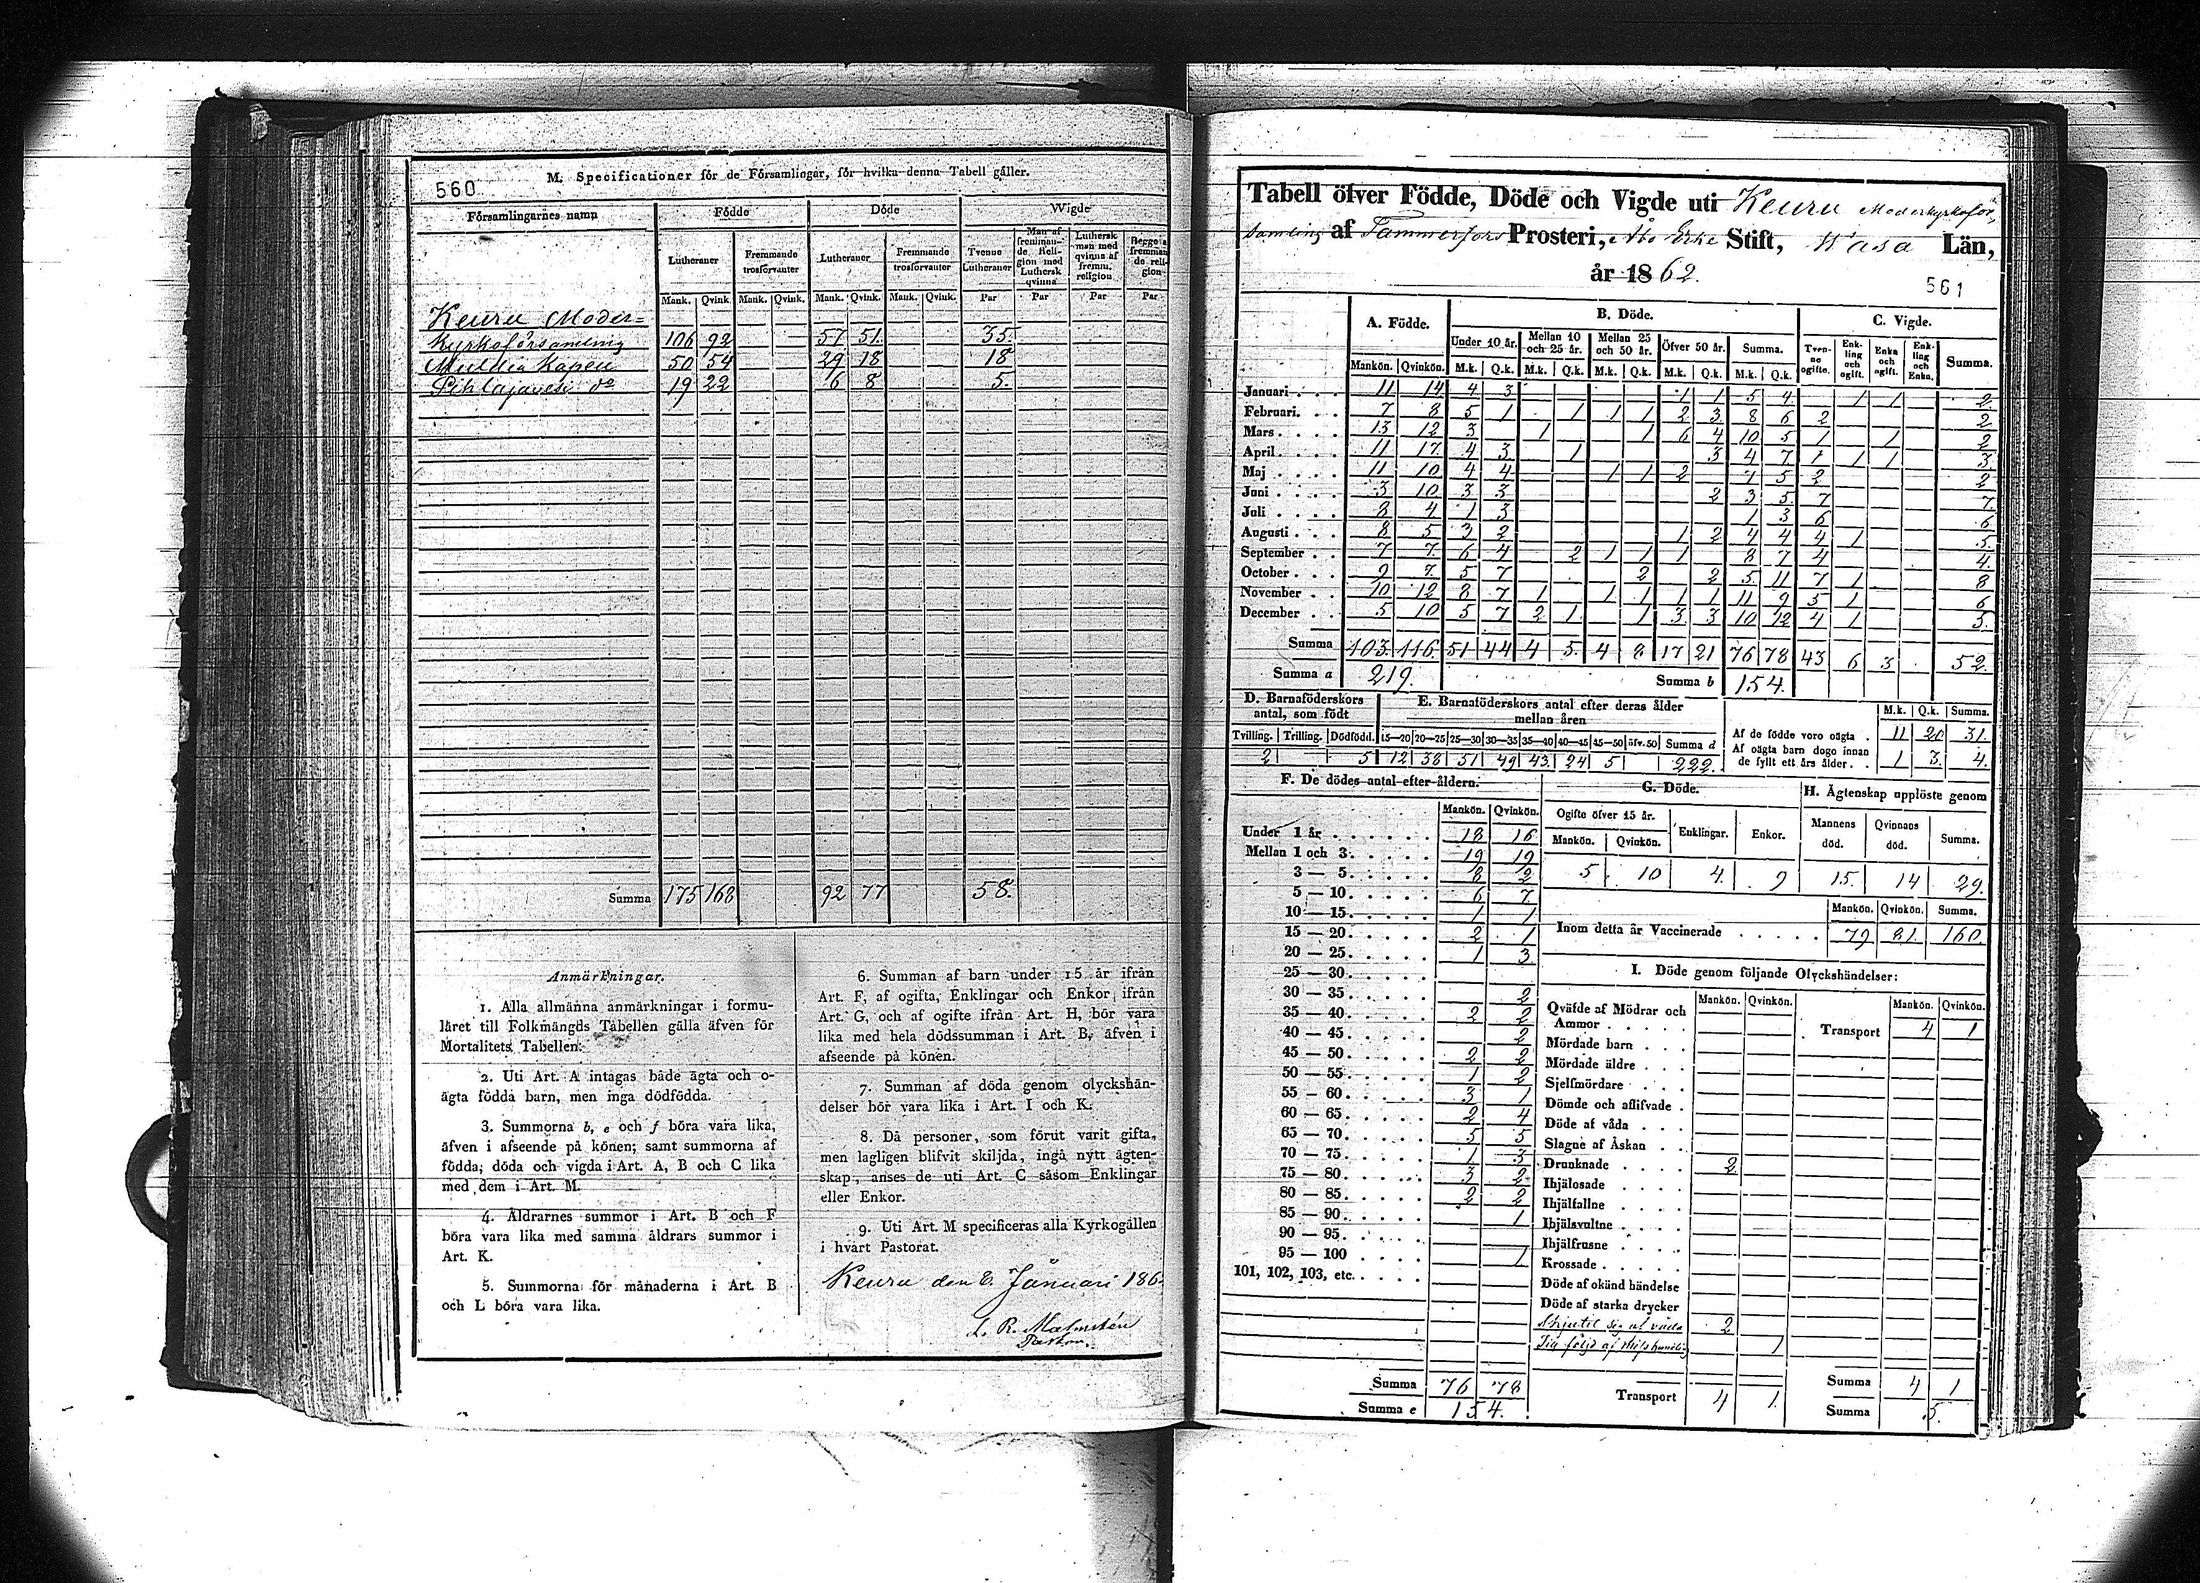 560
M. Specificationer för de Församlingar, för hvilka denna Tabell gäller.
Församlingarnes namn Födde Döde Wigde
Lutheraner Fremmande trosförvanter Lutheraner Fremmande trosförvanter Tvenne Lutheraner Man af fremmande Religion med Luthersk qvinna Luthersk man med qvinna af fremm. religion Begge af fremmande religion
Mank. Qvink. Mank. Qvink. Mank. Qvink. Mank. Qvink. Par Par Par Par
Keuru Moder-
kyrkoförsamling 106 92 57 51 35.
Muldia Kapell 50 54 29 18 18
Pihlajavesi do 19 22 6 8 5.
Summa 175 168 92 77 58.
Anmärkningar.
1. Alla allmänna anmärkningar i formu-
läret till Folkmängds Tabellen gälla äfven för
Mortalitets Tabellen.
2. Uti Art. A intagas både ägta och o-
ägta födda barn, men inga dödfödda.
3. Summorna b, e och f böra vara lika,
äfven i afseende på könen; samt summorna af
födda, döda och vigda i Art. A, B och C lika
med dem i Art. M.
4. Åldrarnes summor i Art. B och F
böra vara lika med samma åldrars summor i
Art. K.
5. Summorna för månaderna i Art. B
och L böra vara lika.
6. Summan af barn under 15 år ifrån
Art. F, af ogifta, Enklingar och Enkor, ifrån
Art. G, och af ogifte ifrån Art. H, bör vara
lika med hela dödssumman i Art. B, äfven i
afseende på könen.
7. Summan af döda genom olyckshän-
delser bör vara lika i Art. I och K.
8. Då personer, som förut varit gifta,
men lagligen blifvit skiljda, ingå nytt ägten-
skap, anses de uti Art. C såsom Enklingar
eller Enkor.
9. Uti Art. M specificeras alla Kyrkogällen
i hvart Pastorat.
Keuru den 8. Januari 186
L. R. Malmstén
Pastor.
Tabell öfver Födde, Döde och Vigde uti Keuru Moderkyrkoför-
samling af Tammerfors Prosteri, Åbo Erke Stift, Wasa Län,
år 1862.
561
A. Födde. B. Döde. C. Vigde.
Under 10 år. Mellan 10 och 25 år. Mellan 25 och 50 år. Öfver 50 år. Summa. Tvenne ogifte. Enkling och ogift. Enka och ogift. Enkling och Enka. Summa.
Mankön. Qvinkön. M.k. Q.k. M.k. Q.k. M.k. Q.k. M.k. Q.k. M.k. Q.k.
Januari 11 14 4 3 1 1 5 4 1 1 2
Februari 7 8 5 1 1 1 1 2 3 8 6 2 2
Mars 13 12 3 1 1 6 4 10 5 1 1 2
April 11 17 4 3 1 3 4 7 1 1 1 3
Maj 11 10 4 4 1 1 2 7 5 2 2
Juni 3 10 3 3 2 3 5 7 7
Juli 8 4 1 3 1 3 6 6
Augusti 8 5 3 2 1 2 4 4 4 1 5
September 7 7 6 4 2 1 1 1 8 7 4 4
October 9 7 5 7 2 2 5 11 7 1 8
November 10 12 8 7 1 1 1 1 1 11 9 5 1 6
December 5 10 5 7 2 1 1 3 3 10 12 4 1 5
Summa 103 116 51 44 4 5 4 8 17 21 76 78 43 6 3 52
Summa a 219. Summa b 154.
D. Barnaföderskors antal, som födt
E. Barnaföderskors antal efter deras ålder mellan åren
Tvilling. Trilling. Dödfödd. 15—20 20—25 25—30 30—35 35—40 40—45 45—50 öfv. 50 Summa d
2 5 12 38 51 49 43 24 5 222.
M.k. Q.k. Summa.
Af de födde voro oägta 11 20 31.
Af oägta barn dogo innan
de fyllt ett års ålder 1 3 4.
F. De dödes antal efter åldern.
Mankön. Qvinkön.
Under 1 år 18 16
Mellan 1 och 3 19 19
3 — 5 8 2
5 — 10 6 7
10 — 15 1 1
15 — 20 2 1
20 — 25 1 3
25 — 30
30 — 35 2
35 — 40 2 2
40 — 45 2
45 — 50 2 2
50 — 55 1 2
55 — 60 3 1
60 — 65 2 4
65 — 70 5 5
70 — 75 1 3
75 — 80 3 2
80 — 85 2 2
85 — 90 1
90 — 95
95 — 100 1
101, 102, 103, etc.
Summa 76 78
Summa e 154.
G. Döde.
Ogifte öfver 15 år. Enklingar. Enkor.
Mankön. Qvinkön.
5 10 4 9
H. Ägtenskap upplöste genom
Mannens död. Qvinnans död. Summa.
15 14 29.
Mankön. Qvinkön. Summa.
Inom detta år Vaccinerade 79 81 160
I. Döde genom följande Olyckshändelser:
Mankön. Qvinkön. Mankön. Qvinkön.
Qväfde af Mödrar och
Ammor Transport 4 1
Mördade barn
Mördade äldre
Sjelfmördare
Dömde och aflifvade
Döde af våda
Slagne af Åskan
Drunknade 2
Ihjälosade
Ihjälfallne
Ihjälsvultne
Ihjälfrusne
Krossade
Döde af okänd händelse
Döde af starka drycker
Skjutit sig af våda 2
Till följd af 1
Transport 4 1 Summa 4 1
Summa 5.